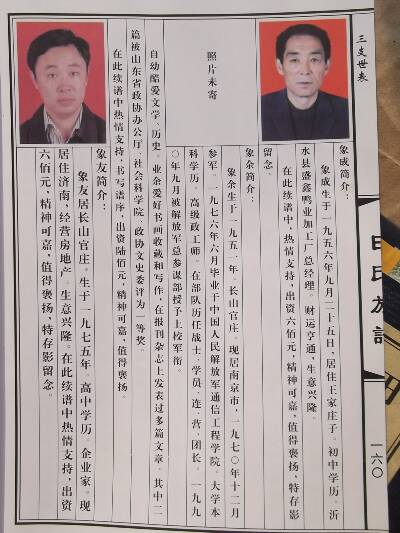 三支世表
氏族譜
一六〇
象成简介：
象成生于一九五六年九月二十五日，居住王家庄子。初中学历。沂
水县盛鑫鸭业加工厂总经理。财运亨通，生意兴隆。
在此续谱中，热情支持，出资六佰元，精神可嘉，值得褒扬，特存影
留念。
照片未寄
象余简介：
象余生于一九五一年，长山官庄。现居南京市，一九七〇年十二月
参军。一九七六年六月毕业于中国人民解放军通信工程学院。大学本
科学历。高级政工师。在部队历任战士、学员、连、营、团长。一九九
〇年九月被解放军总参谋部授予上校军衔。
自幼酷爱文学、历史。业余爱好书画收藏和写作，在报刊杂志上发表过多篇文章。其中二
篇被山东省政协办公厅、社会科学院、政协文史委评为一等奖。
在此续谱中热情支持，书写谱序，出资陆佰元，精神可嘉，值得褒扬。
象友简介：
象友居长山官庄。生于一九七五年。高中学历。企业家。现
居住济南，经营房地产。生意兴隆。在此续谱中热情支持，出资
六佰元，精神可嘉，值得褒扬，特存影留念。